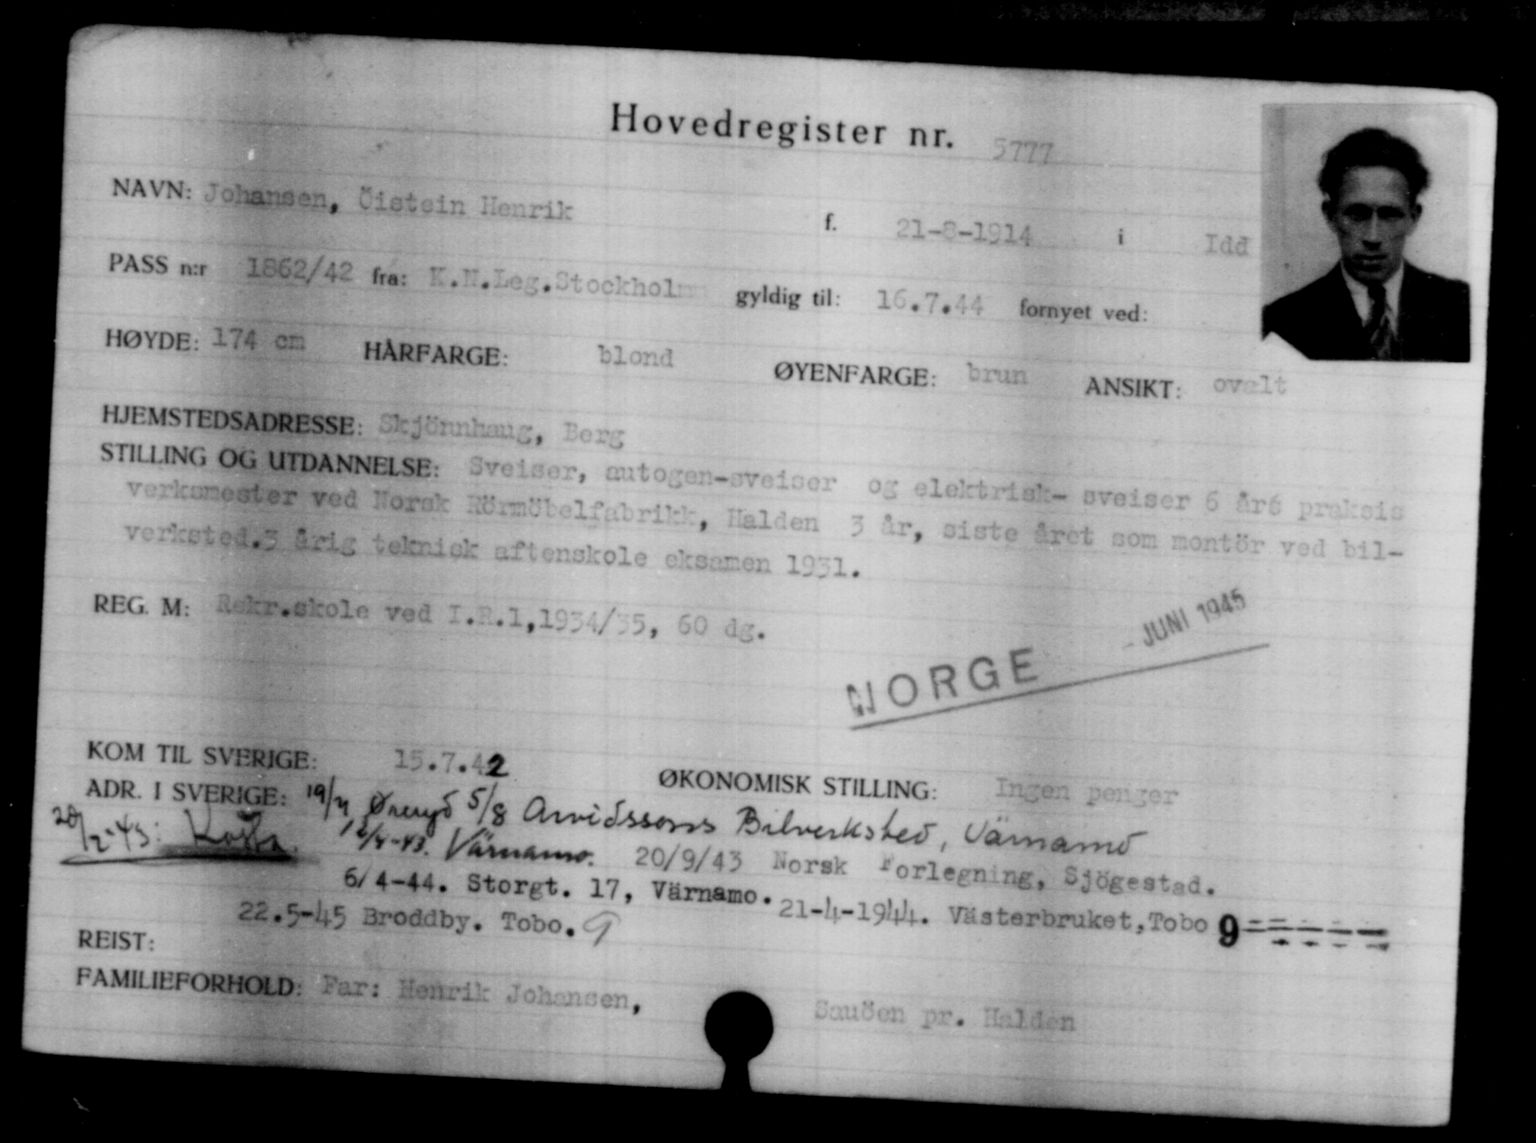 Hovedregister nr. 5777
NAVN: Johansen, Öistein Henrik f. 21-8-1914 i Idd
PASS n:r 1862/42 fra: K.N.Leg.Stockholm gyldig til: 16.7.44 fornyet ved:
HØYDE: 174 cm HÅRFARGE: blond ØYENFARGE: brun ANSIKT: ovalt
HJEMSTEDSADRESSE: Skjönnhaug, Berg
STILLING OG UTDANNELSE: Sveiser, autogen-sveiser og elektrisk- sveiser 6 år6 praksis
verksmester ved Norsk Rörmöbelfabrikk, Halden 3 år, siste året som montör ved bil-
verksted.3 årig teknisk aftenskole eksamen 1931.
REG. M: Rekr.skole ved I.R.1,1934/35, 60 dg.
NORGE - JUNI 1945
KOM TIL SVERIGE: 15.7.42 ØKONOMISK STILLING: Ingen penger
ADR. I SVERIGE: 19/7 Öreryd 5/8 Arvidssons Bilverksted, Värnamo
20/2-43: Kosta. 12/8-43. Värnamo. 20/9/43 Norsk Forlegning, Sjögestad.
6/4-44. Storgt. 17, Värnamo. 21-4-1944. Västerbruket,Tobo 9
22.5-45 Broddby. Tobo. 9
REIST:
FAMILIEFORHOLD: Far: Henrik Johansen, Sauöen pr. Halden